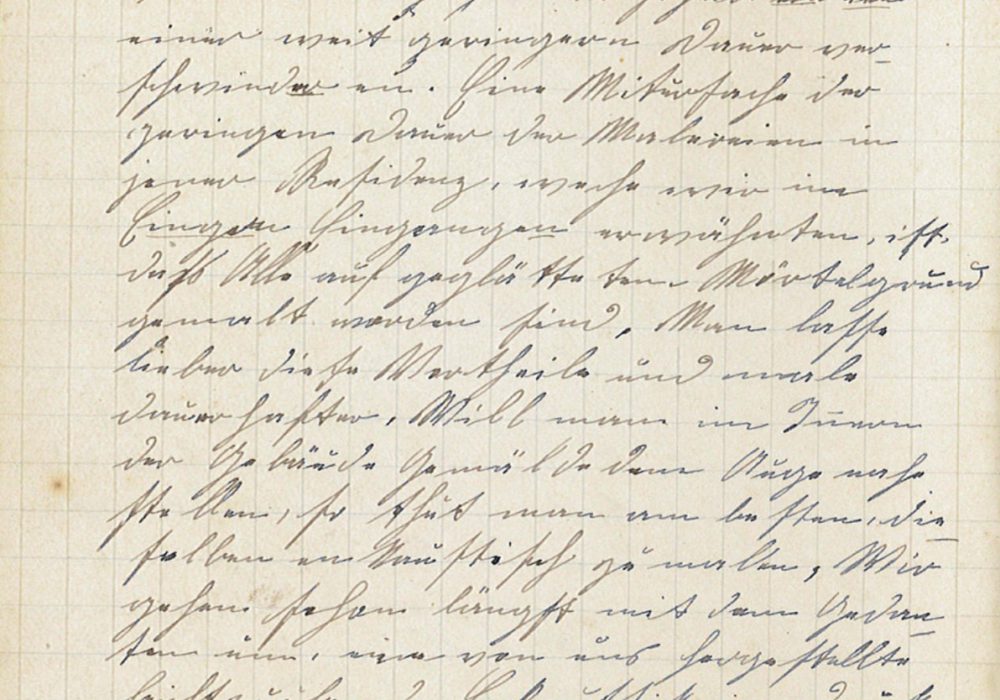 einer weit geringern Dauer ver-
schwinden an. Eine Mitursache der
geringen Dauer der Malereien in
jener Residenz, welche wir im
Eingangen erwähnten, ist,
daß Alle auf geglätteten Mörtelgrund
gemalt worden sind. Man lasse
lieber diese Vortheile und male
dauerhafter. Will man im Innern
der Gebäude Gemälde dem Auge nahe
stellen, so thut man am besten, die-
selben enkaustisch zu malen. Wir
gehen schon längst mit dem Gedan-
ken um, eine von uns hergestellte